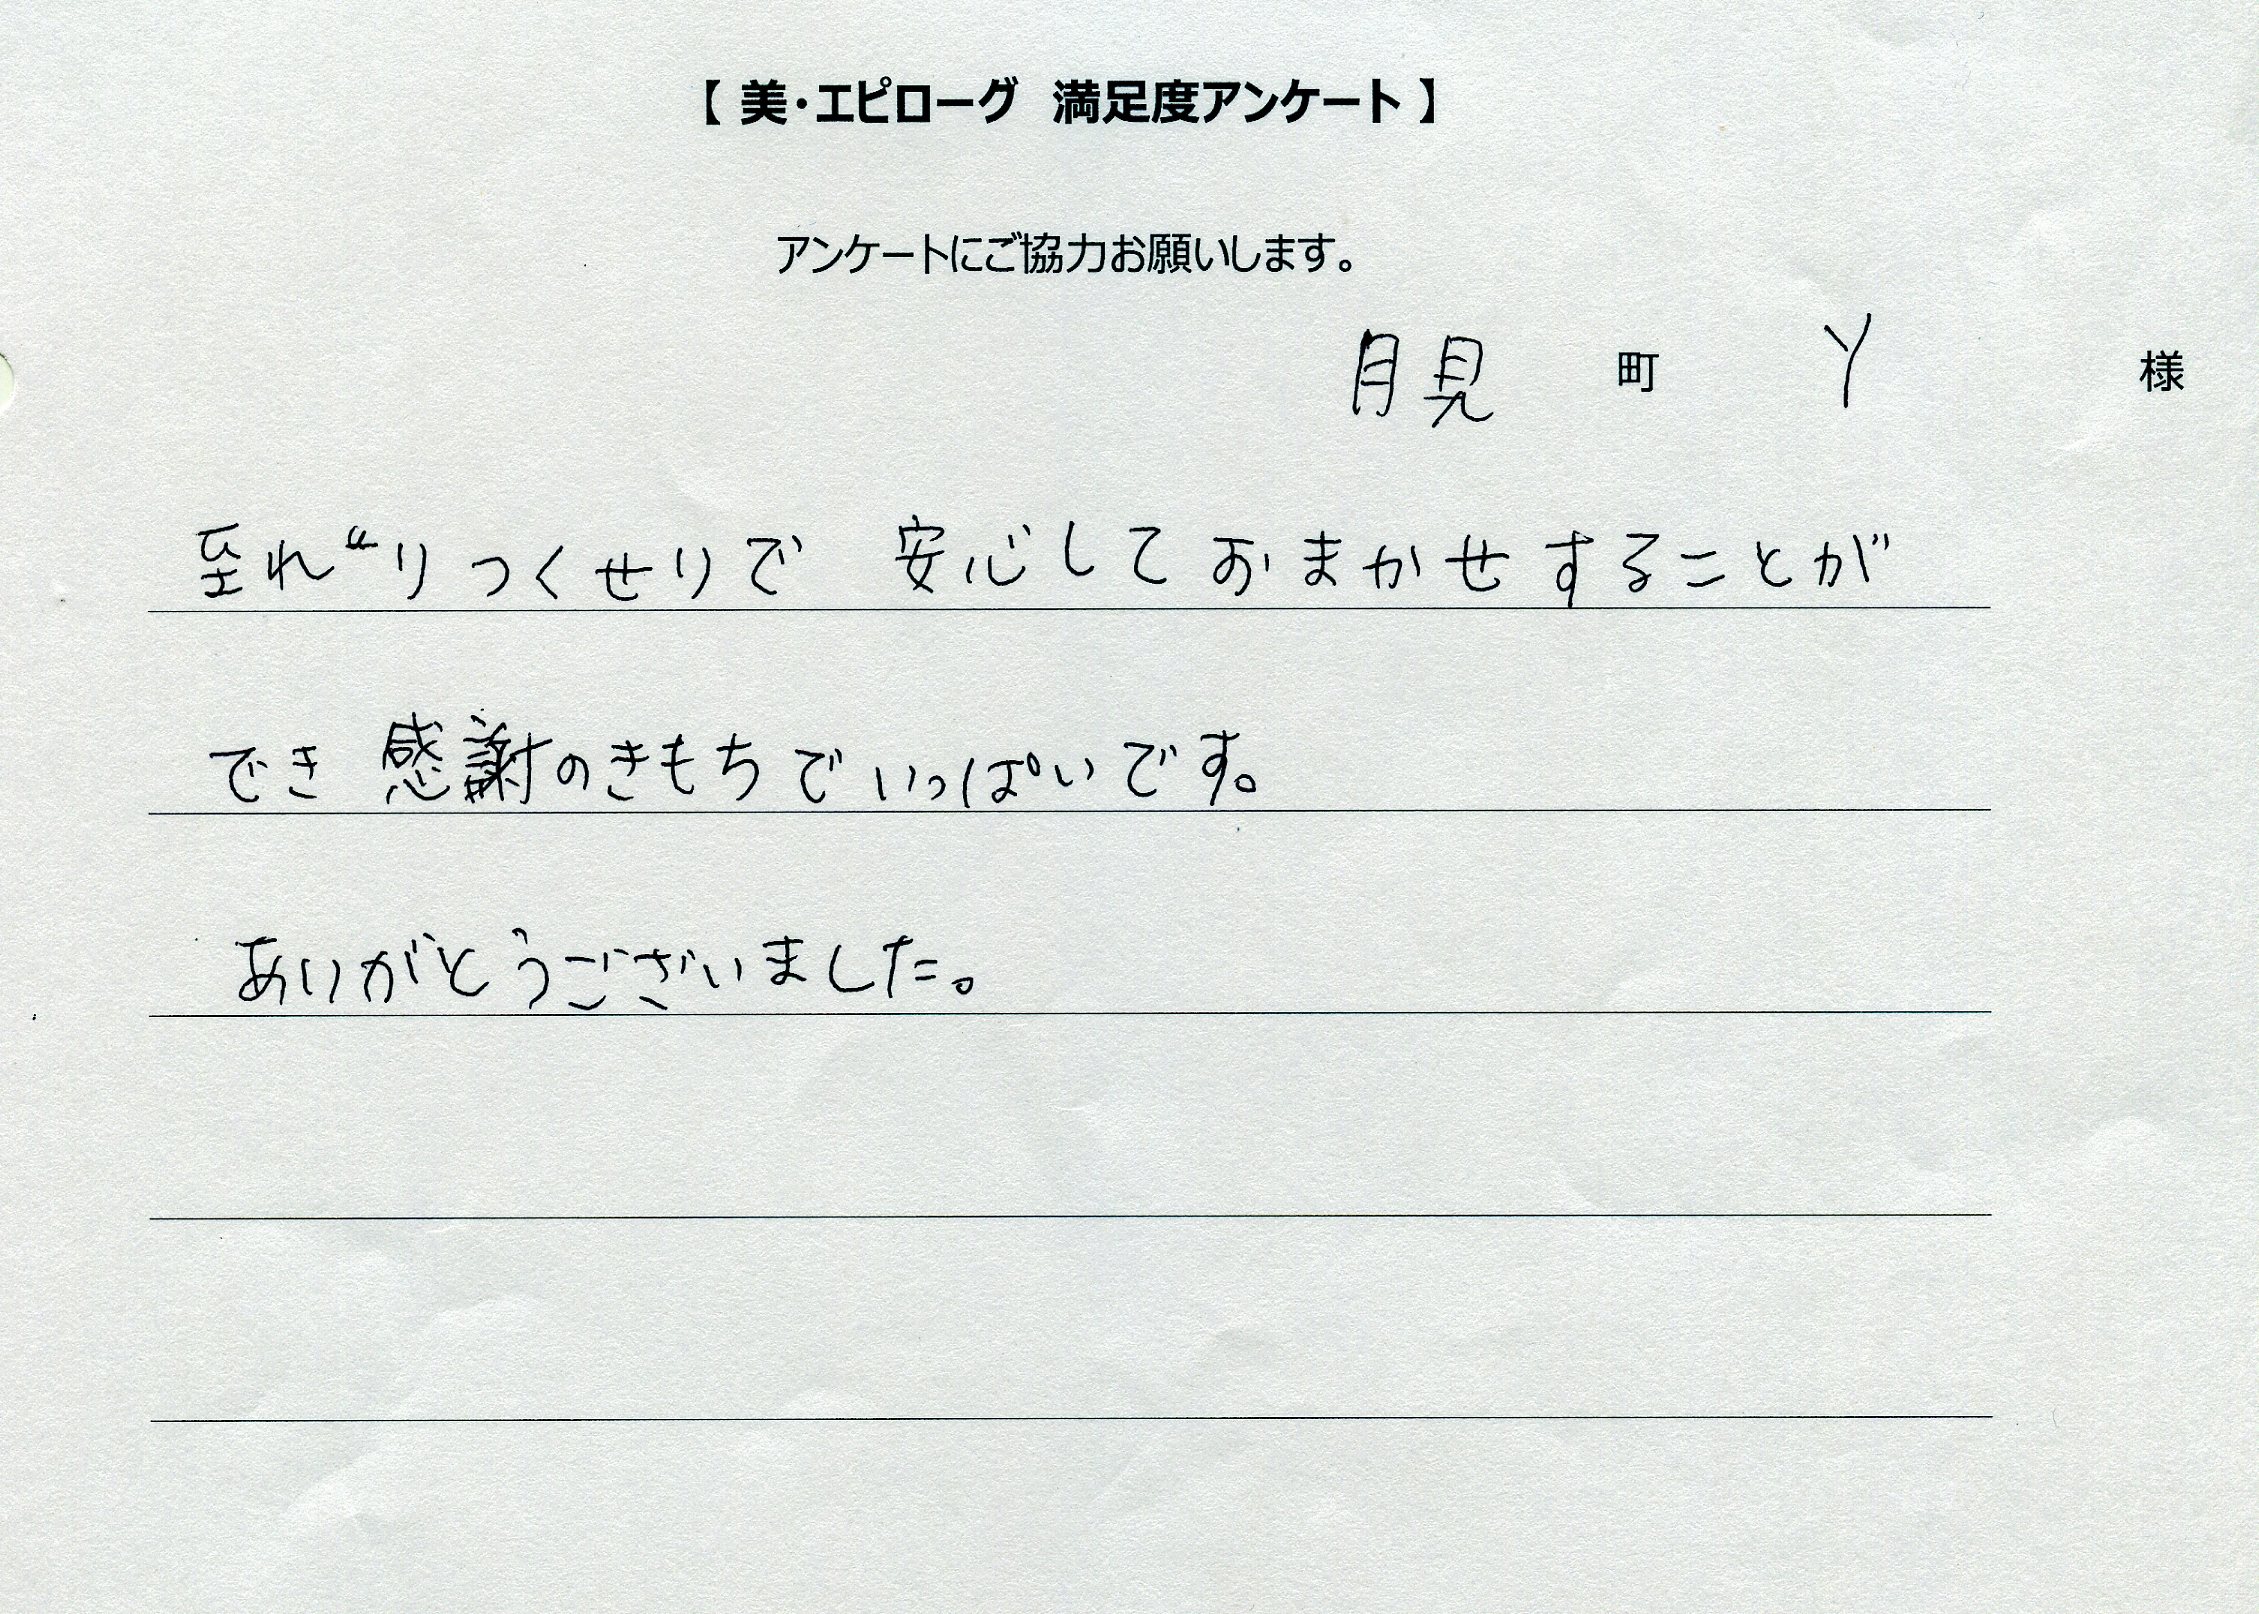 【 美・エピローグ 満足度アンケート 】
アンケートにご協力お願いします。
月見 町 Y 様
至れ〝りつくせりで 安心しておまかせすることが
でき 感謝のきもちでいっぱいです。
ありがとうございました。